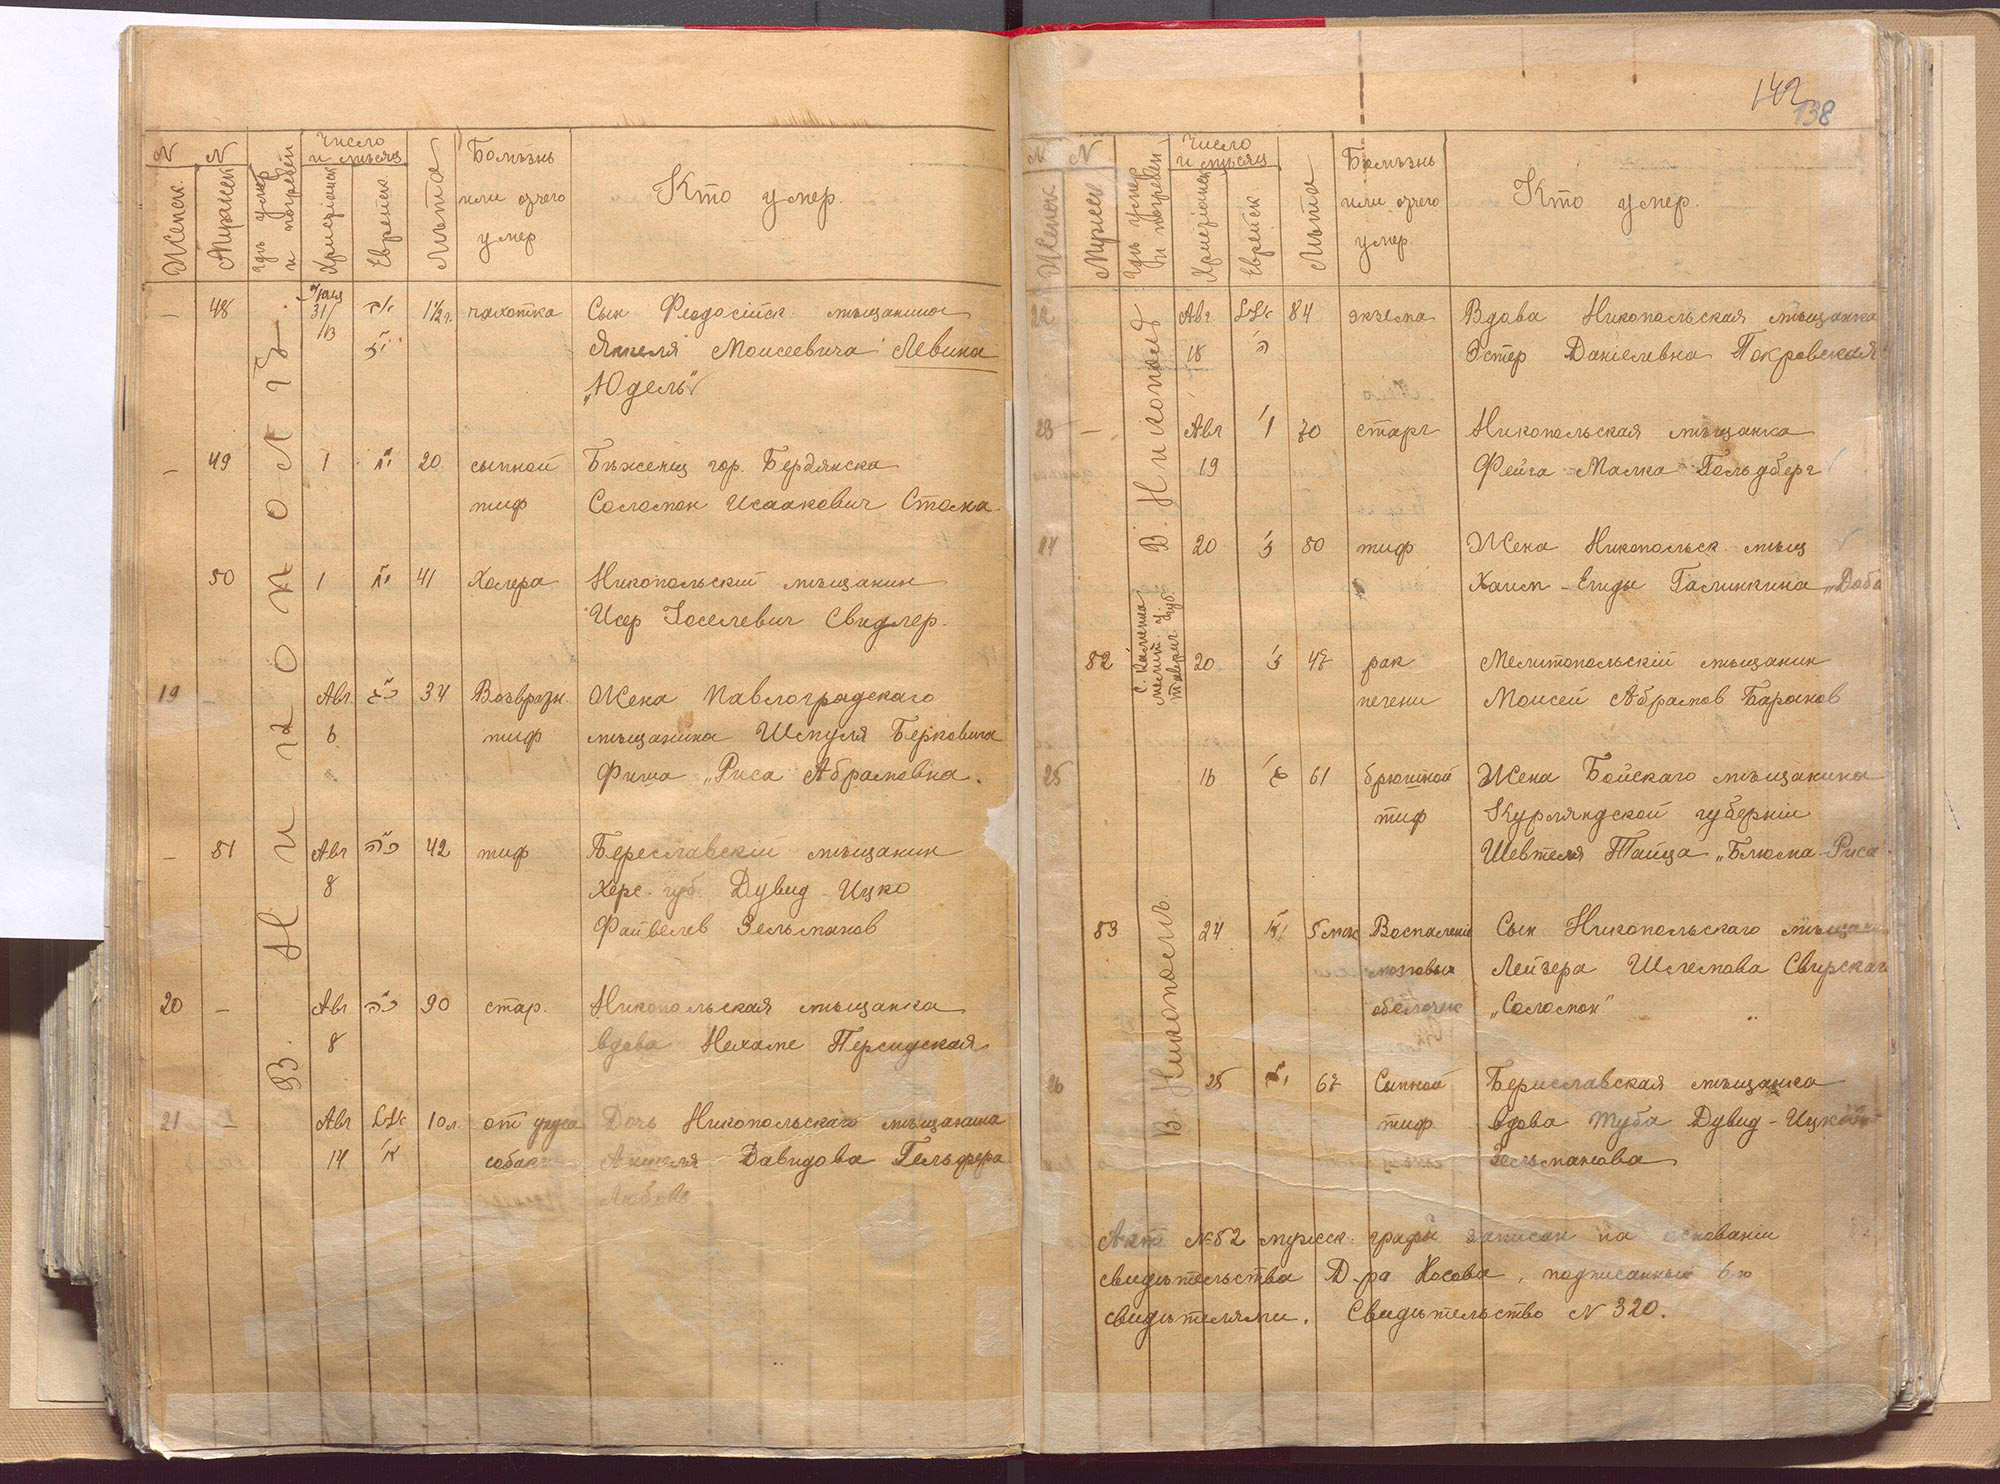 N
N
Женск.
Мужск
Гдѣ умер и погребен
Число
и мѣсяц
Христіанск
Еврейск.
Лѣта
Болѣзнь
или отчего
умер
Кто умер.
В. Никополѣ
— 48 Іюля 31/13 1½ г. чахотка Сын Феодосійск. мѣщанина
Янкеля Моисеевича Левина
„Юдель"
— 49 1 20 сыпной Бѣженец гор. Бердянска
тиф Соломон Исаакович
50 1 41 Холера Никопольскій мѣщанин
Исер Іоселевич Свидлер.
19 — Авг. 34 Возвратн. Жена Павлоградскаго
6 тиф мѣщанина Шмуля Берковича
Фиша „Риса Абрамовна.
— 51 Авг 42 тиф Береславскій мѣщанин
8 Херс. губ. Дувид-Ицко
Файвелев Зельманов
20 — Авг 90 стар. Никопольская мѣщанка
8 вдова Нехаме Персидская
21 — Авг 10 л. от укуса Дочь Никопольскаго мѣщанина
14 собаки Давидова
Любовь
142
138
N
N
Женск
Мужск
Гдѣ умер и погребен
Число
и мѣсяц
Христіанск
Еврейск.
Лѣта
Болѣзнь
или отчего
умер.
Кто умер.
В. Никополѣ
22 Авг 84 экзема Вдова Никопольская мѣщанка
18 ה Эстер Даніелевна Покровская
23 — Авг 70 старч Никопольская мѣщанка
19 Фейга Малка Гольдберг
24 20 80 тиф Жена Никопольск. мѣщ
Хаим-Егиды Галинкина „Доба
С. Каменка мелит. у. таврич. губ.
52 20 47 рак Мелитопольскій мѣщанин
печени Моисей Абрамов Баранов
25 16 61 брюшной Жена мѣщанина
тиф Курляндской губерніи
Шевтеля Тайца „Блюма-Риса
В. Никополѣ.
53 24 5 мѣс Воспаленіе Сын Никопольскаго мѣщан
мозговых Лейзера Шлемова Свирскаг
оболочек „Соломон"
26 25 67 Сыпной Бериславская мѣщанка
тиф вдова Туба Дувид-Ицков
Зельманова
Акт №52 мужск. графы записан на основаніи
свидѣтельства Д-ра Носова, подписанный 6-ю
свидѣтелями. Свидѣтельство N 320.